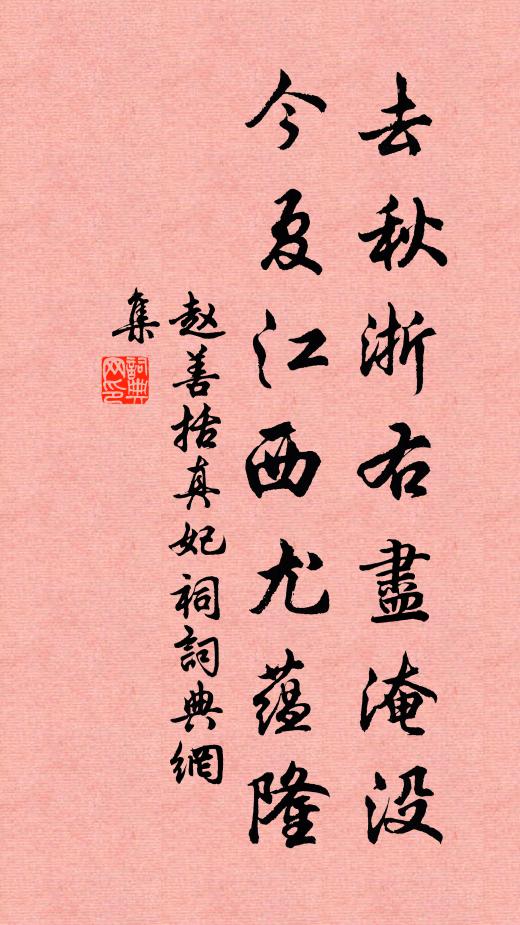 去秋浙右盡淹没
今夏江西尤蕴隆
赵善括真妃祠詞典網
集
詞典
网印